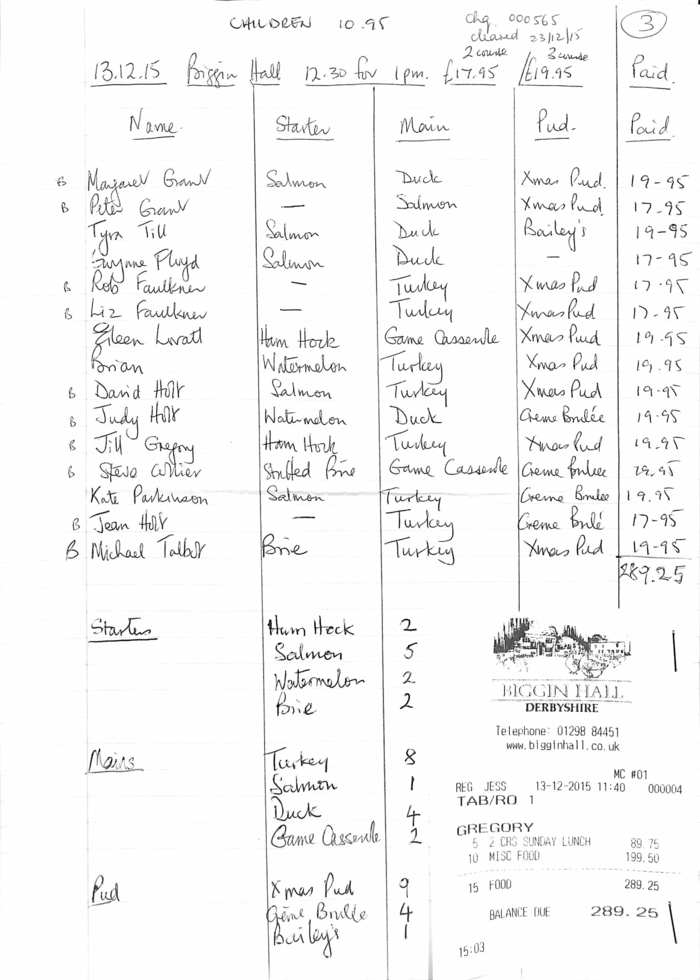 CHILDREN 10.95
Chq. 000565
cleared 23/12/15
3
2 course 3 course
13.12.15 Biggin Hall 12.30 for 1pm. £17.95 / £19.95 Paid.
Name. Starter Main Pud. Paid.
B Margaret Grant Salmon Duck Xmas Pud. 19-95
B Peter Grant — Salmon Xmas Pud. 17.95
Tyra Till Salmon Duck Bailey's 19-95
Floyd Salmon Duck — 17-95
B Rob Faulkner — Turkey Xmas Pud 17.95
B Liz Faulkner — Turkey Xmas Pud 17-95
Eileen Game Casserole Ham Hock Xmas Pud 19.95
Brian Watermelon Turkey Xmas Pud 19.95
B David Holt Salmon Turkey Xmas Pud 19-95
B Judy Holt Watermelon Duck Creme Brulée 19.95
B Jill Gregory Ham Hock Turkey Xmas Pud 19.95
B Steve Collier Stuffed Brie Game Casserole Creme Brulee 19.95
Kate Parkinson Salmon Turkey Creme Brulee 19.95
B Jean Holt — Turkey Creme Brulé 17-95
B Michael Talbot Brie Turkey Xmas Pud 19-95
289.25
Starters Ham Hock 2
Salmon 5
Watermelon 2
Brie 2
Mains Turkey 8
Salmon 1
Duck 4
Game Casserole 2
Pud Xmas Pud 9
Crème Brulée 4
Bailey's 1
BIGGIN HALL
DERBYSHIRE
Telephone: 01298 84451
www.bigginhall.co.uk
MC #01
REG JESS 13-12-2015 11:40 000004
TAB/RO 1
GREGORY
5 2 CRS SUNDAY LUNCH 89.75
10 MISC FOOD 199.50
15 FOOD 289.25
BALANCE DUE 289.25
15:03